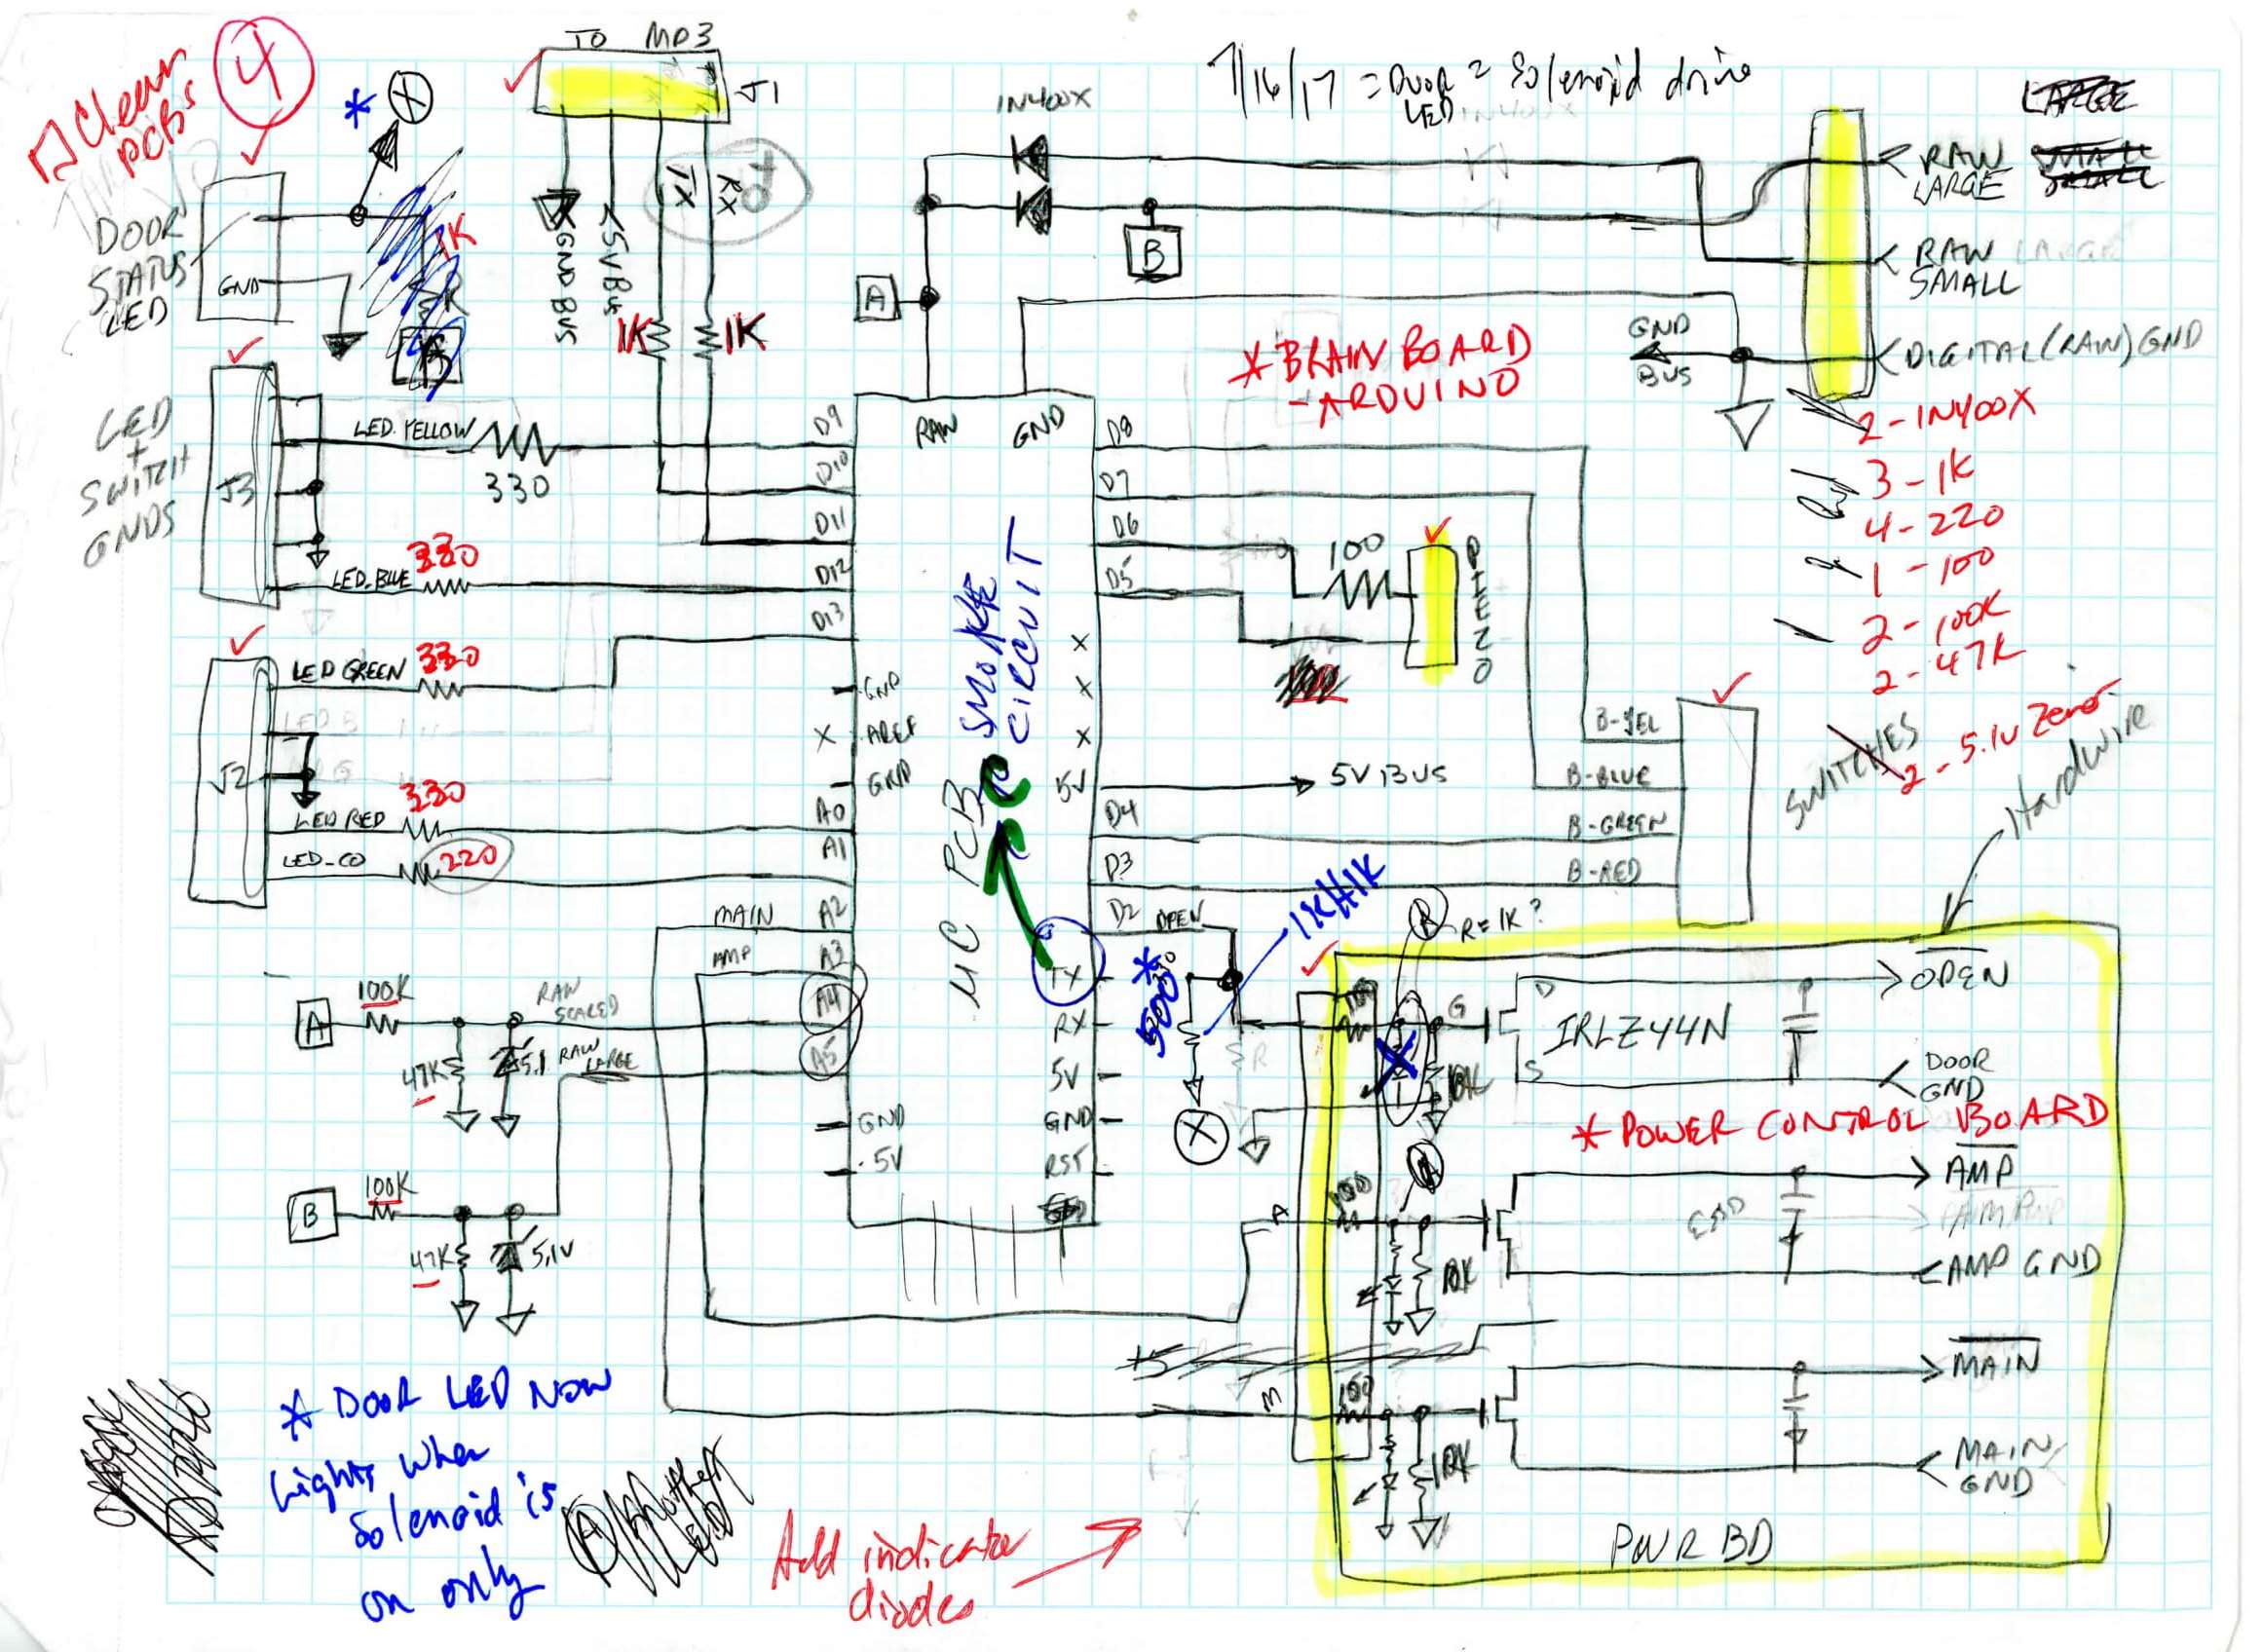 □ Clean
PCBS
4
* X
TO MP3
J1
7/16/17 = DOOR = Solenoid drive
LED
IN400X
IN400X
LARGE
RAW
LARGE
SMALL
RAW
SMALL
LARGE
DIGITAL (RAW) GND
GND
BUS
DOOR
STATUS
LED
GND
1K
R
GND BUS
5V BUS
TX
RX
TO
1K
1K
A
B
* BRAIN BOARD
- ARDUINO
2 - IN400X
3 - 1K
4 - 220
1 - 100
2 - 100K
2 - 47K
2 - 5.1V Zener
LED
+
SWITCH
GNDS
J3
LED YELLOW
330
LED_BLUE
330
J2
LED GREEN
330
LED RED
330
LED_CO
220
RAW
GND
D9
D10
D11
D12
D13
GND
AREF
GND
A0
A1
A2
A3
A4
A5
GND
5V
D8
D7
D6
D5
X
X
X
X
5V
D4
D3
D2
TX
RX
5V
GND
RST
µC PCB
SMOKE
CIRCUIT
100
PIEZO
5V BUS
B-YEL
B-BLUE
B-GREEN
B-RED
SWITCHES
Hardwire
MAIN
AMP
OPEN
1K
R = 1K ?
* 500
330
X
R
A
100K
47K
5.1
RAW
SCALED
RAW
LARGE
B
100K
47K
5.1V
G
D
S
IRLZ44N
10K
OPEN
DOOR
GND
* POWER CONTROL BOARD
A
100
10K
AMP
AMP GND
+5
M
100
10K
MAIN
MAIN
GND
PWR BD
* DOOR LED NOW
Lights when
Solenoid is
on only
A
Another
LED
Add indicator
diodes